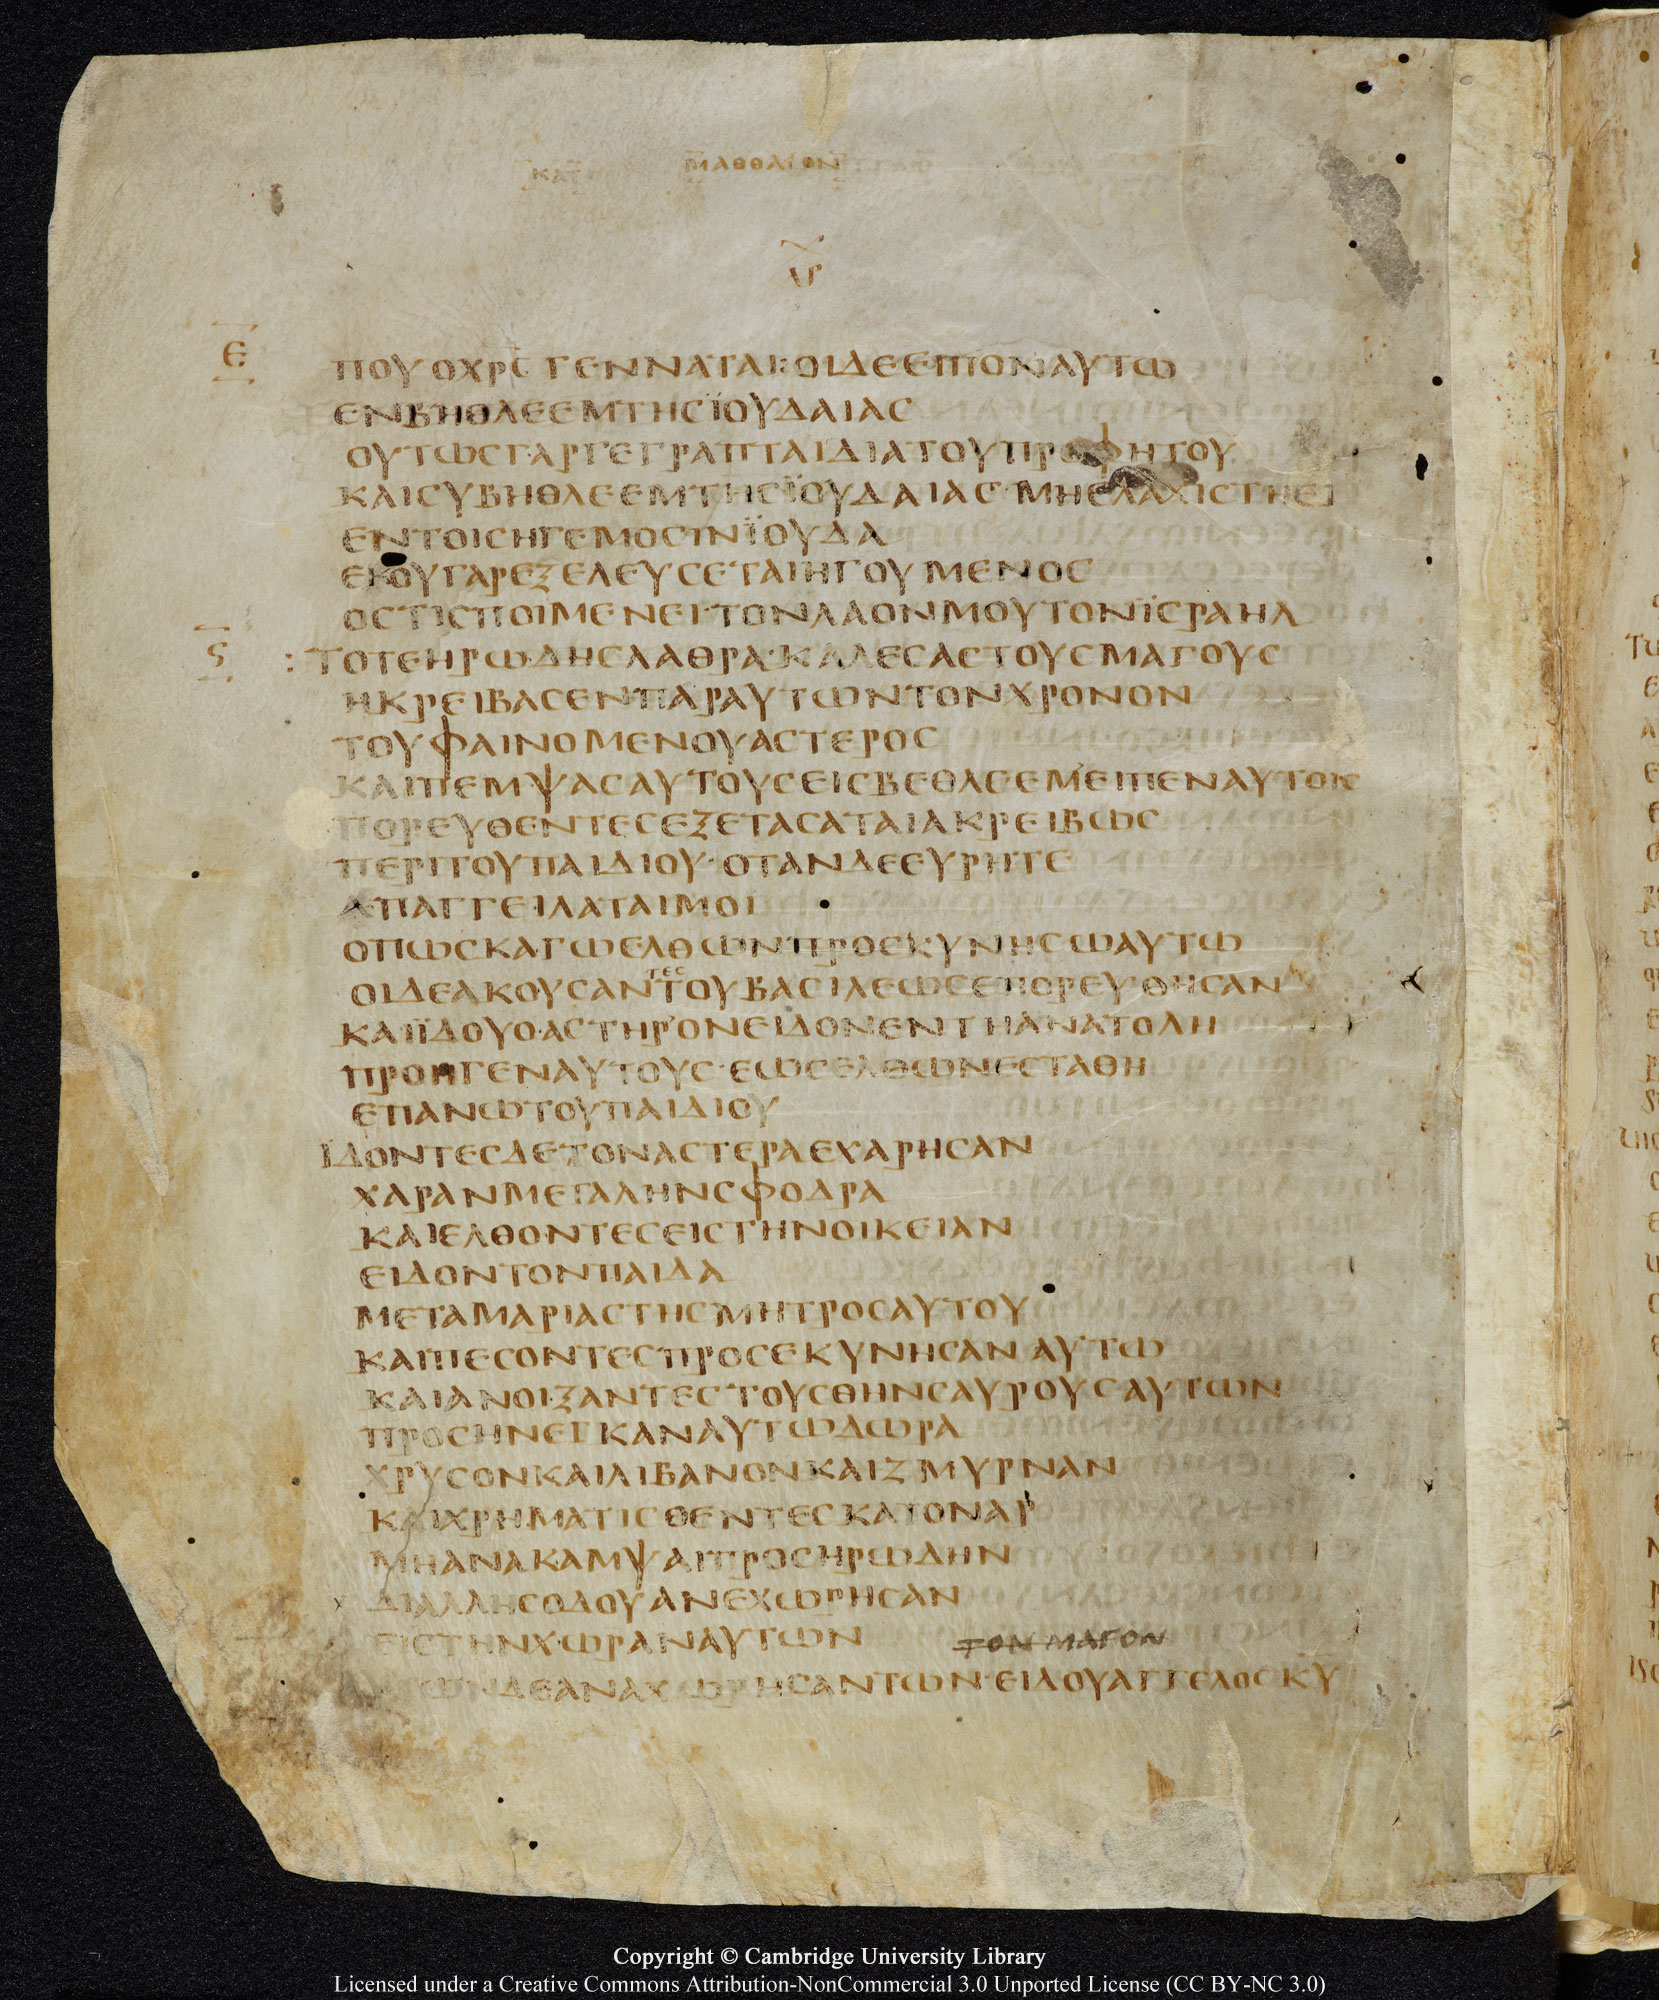 ΚΑΤ ΜΑΘΘΑΙΟΝ
Ε
ΠΟΥ Ο ΧΡΣ ΓΕΝΝΑΤΑΙ: ΟΙ ΔΕ ΕΙΠΟΝ ΑΥΤΩ
ΕΝ ΒΗΘΛΕΕΜ ΤΗΣ ΪΟΥΔΑΙΑΣ
ΟΥΤΩΣ ΓΑΡ ΓΕΓΡΑΠΤΑΙ ΔΙΑ ΤΟΥ ΠΡΟΦΗΤΟΥ
ΚΑΙ ΣΥ ΒΗΘΛΕΕΜ ΤΗΣ ΪΟΥΔΑΙΑΣ· ΜΗ ΕΛΑΧΙΣΤΗ ΕΙ
ΕΝ ΤΟΙΣ ΗΓΕΜΟΣΙΝ ΪΟΥΔΑ
ΕΚ ΟΥ ΓΑΡ ΕΞΕΛΕΥΣΕΤΑΙ ΗΓΟΥΜΕΝΟΣ
ΟΣΤΙΣ ΠΟΙΜΕΝΕΙ· ΤΟΝ ΛΑΟΝ ΜΟΥ ΤΟΝ ΪΣΡΑΗΛ
Ϛ : ΤΟΤΕ ΗΡΩΔΗΣ ΛΑΘΡΑ· ΚΑΛΕΣΑΣ ΤΟΥΣ ΜΑΓΟΥΣ
ΗΚΡΕΙΒΑΣΕΝ ΠΑΡ ΑΥΤΩΝ ΤΟΝ ΧΡΟΝΟΝ
ΤΟΥ ΦΑΙΝΟΜΕΝΟΥ ΑΣΤΕΡΟΣ
ΚΑΙ ΠΕΜΨΑΣ ΑΥΤΟΥΣ ΕΙΣ ΒΕΘΛΕΕΜ ΕΙΠΕΝ ΑΥΤΟΙΣ
ΠΟΡΕΥΘΕΝΤΕΣ ΕΞΕΤΑΣΑΤΑΙ ΑΚΡΕΙΒΩΣ
ΠΕΡΙ ΤΟΥ ΠΑΙΔΙΟΥ· ΟΤΑΝ ΔΕ ΕΥΡΗΤΕ
ΑΠΑΓΓΕΙΛΑΤΑΙ ΜΟΙ
ΟΠΩΣ ΚΑΓΩ ΕΛΘΩΝ ΠΡΟΣΚΥΝΗΣΩ ΑΥΤΩ
ΟΙ ΔΕ ΑΚΟΥΣΑΝΤΕΣ ΤΟΥ ΒΑΣΙΛΕΩΣ ΕΠΟΡΕΥΘΗΣΑΝ
ΚΑΙ ΪΔΟΥ Ο ΑΣΤΗΡ ΟΝ ΕΙΔΟΝ ΕΝ ΤΗ ΑΝΑΤΟΛΗ
ΠΡΟΗΓΕΝ ΑΥΤΟΥΣ· ΕΩΣ ΕΛΘΩΝ ΕΣΤΑΘΗ
ΕΠΑΝΩ ΤΟΥ ΠΑΙΔΙΟΥ
ΪΔΟΝΤΕΣ ΔΕ ΤΟΝ ΑΣΤΕΡΑ ΕΧΑΡΗΣΑΝ
ΧΑΡΑΝ ΜΕΓΑΛΗΝ ΣΦΟΔΡΑ
ΚΑΙ ΕΛΘΟΝΤΕΣ ΕΙΣ ΤΗΝ ΟΙΚΕΙΑΝ
ΕΙΔΟΝ ΤΟΝ ΠΑΙΔΑ
ΜΕΤΑ ΜΑΡΙΑΣ ΤΗΣ ΜΗΤΡΟΣ ΑΥΤΟΥ
ΚΑΙ ΠΕΣΟΝΤΕΣ ΠΡΟΣΕΚΥΝΗΣΑΝ ΑΥΤΩ
ΚΑΙ ΑΝΟΙΞΑΝΤΕΣ ΤΟΥΣ ΘΗΝΣΑΥΡΟΥΣ ΑΥΤΩΝ
ΠΡΟΣΗΝΕΓΚΑΝ ΑΥΤΩ ΔΩΡΑ
ΧΡΥΣΟΝ ΚΑΙ ΛΙΒΑΝΟΝ ΚΑΙ ΖΜΥΡΝΑΝ
ΚΑΙ ΧΡΗΜΑΤΙΣΘΕΝΤΕΣ ΚΑΤ ΟΝΑΡ
ΜΗ ΑΝΑΚΑΜΨΑΙ ΠΡΟΣ ΗΡΩΔΗΝ
ΔΙ ΑΛΛΗΣ ΟΔΟΥ ΑΝΕΧΩΡΗΣΑΝ
ΕΙΣ ΤΗΝ ΧΩΡΑΝ ΑΥΤΩΝ ΤΟΝ ΜΑΓΟΝ
ΔΕ ΑΝΑΧΩΡΗΣΑΝΤΩΝ· ΕΙΔΟΥ ΑΓΓΕΛΟΣ ΚΥ
Copyright © Cambridge University Library
Licensed under a Creative Commons Attribution-NonCommercial 3.0 Unported License (CC BY-NC 3.0)